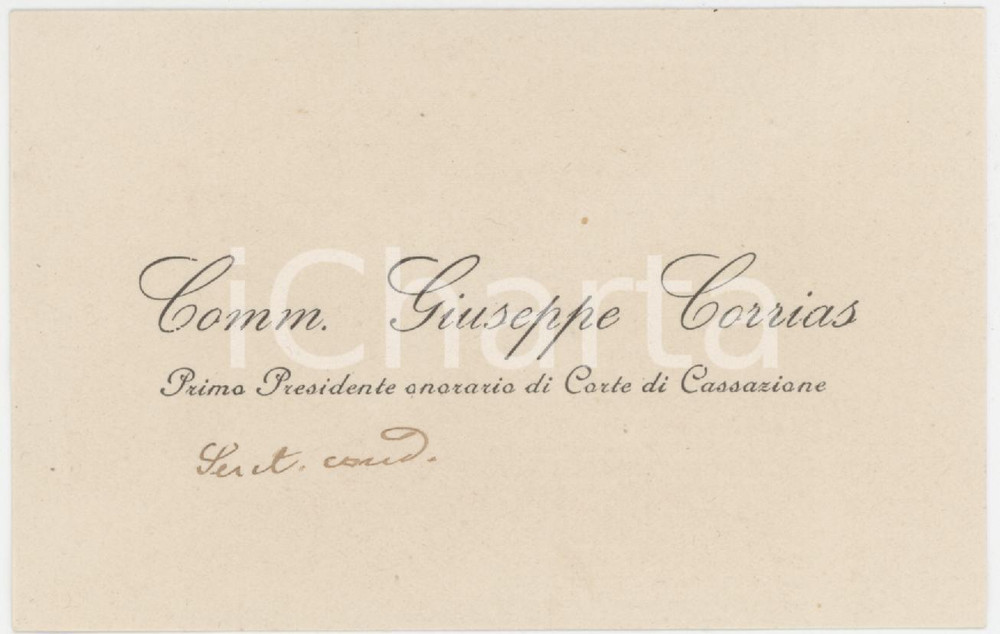 Comm. Giuseppe Corrias
Primo Presidente onorario di Corte di Cassazione
Sent. cond.
iCharta